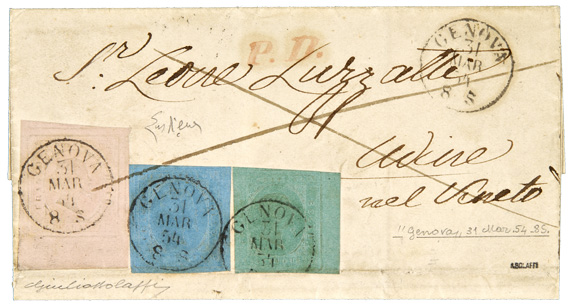 P. D.
GENOVA
31
MAR
54
8 S
Sr Leone Luzzatto
Udine
nel Veneto
GENOVA
31
MAR
54
8 S
GENOVA
31
MAR
54
8 S
GENOVA
31
MAR
54
8 S
Genova, 31 Mar 54. 8S.
ASOLAFFI